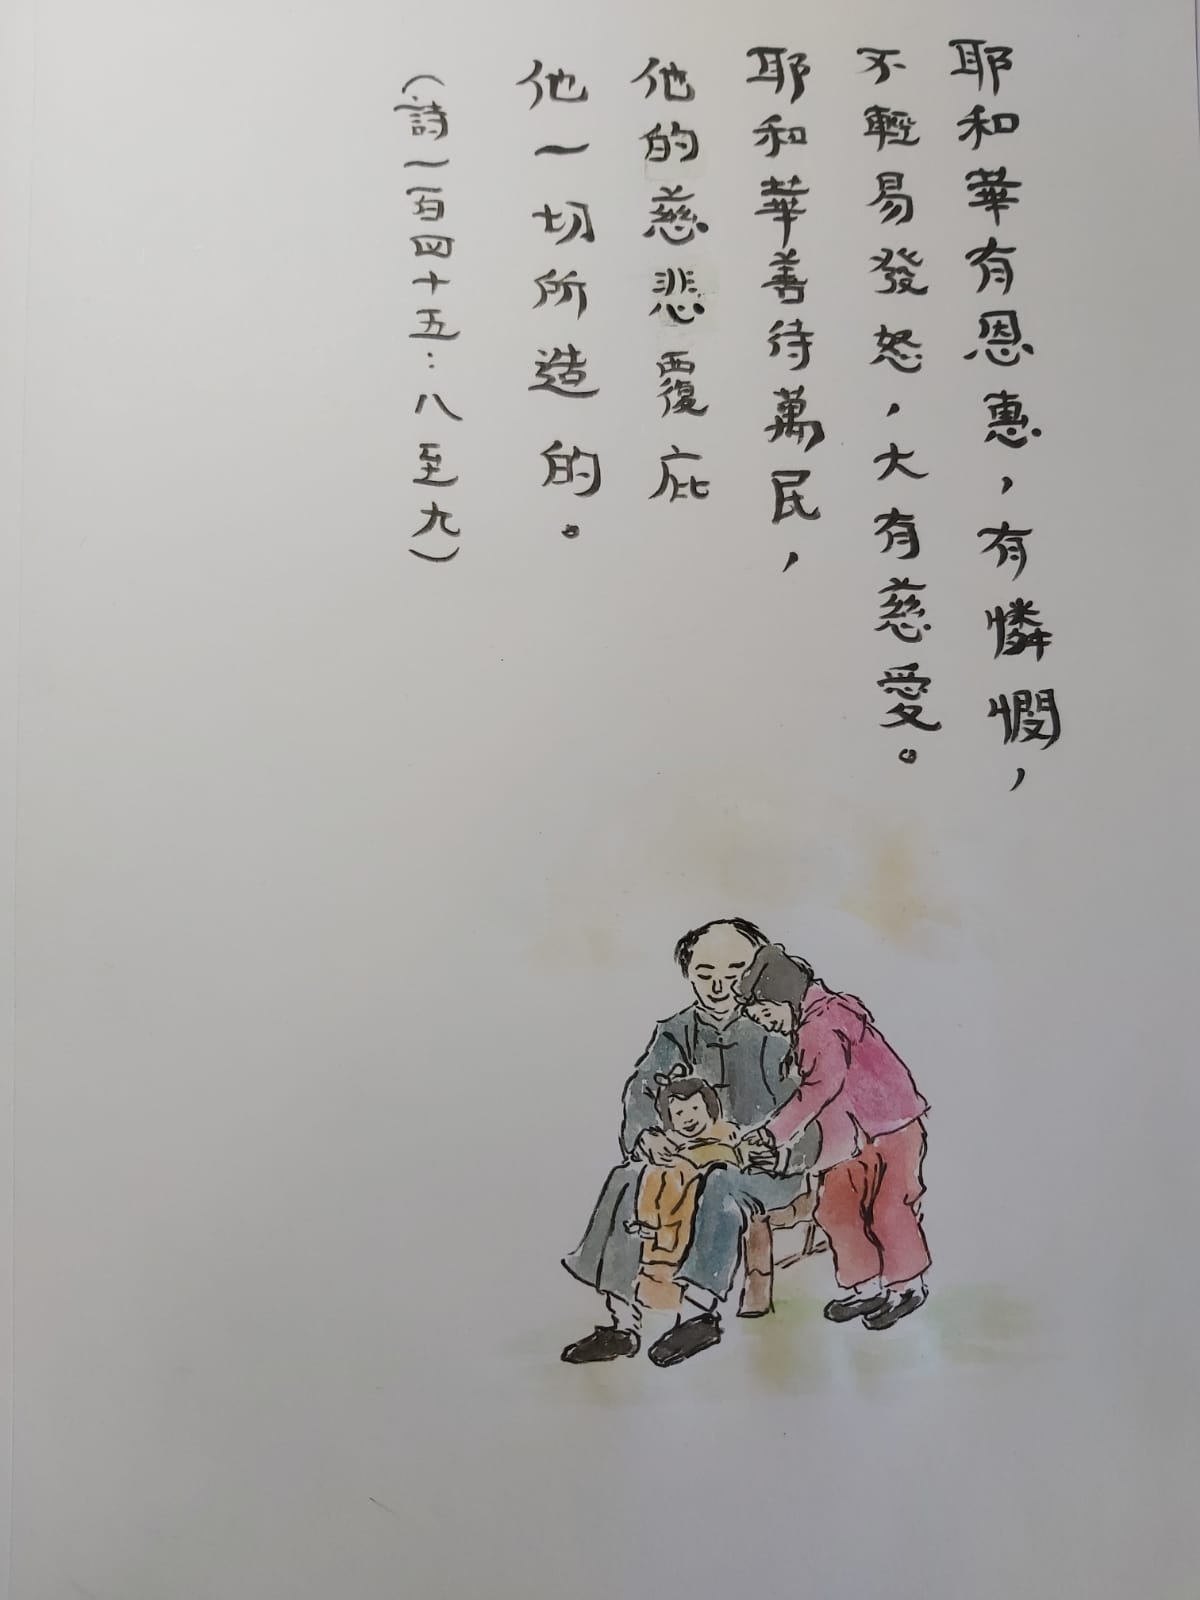 耶和華有恩惠，有憐憫，
不輕易發怒，大有慈愛。
耶和華善待萬民，
他的慈悲覆庇
他一切所造的。
（詩一百四十五：八至九）